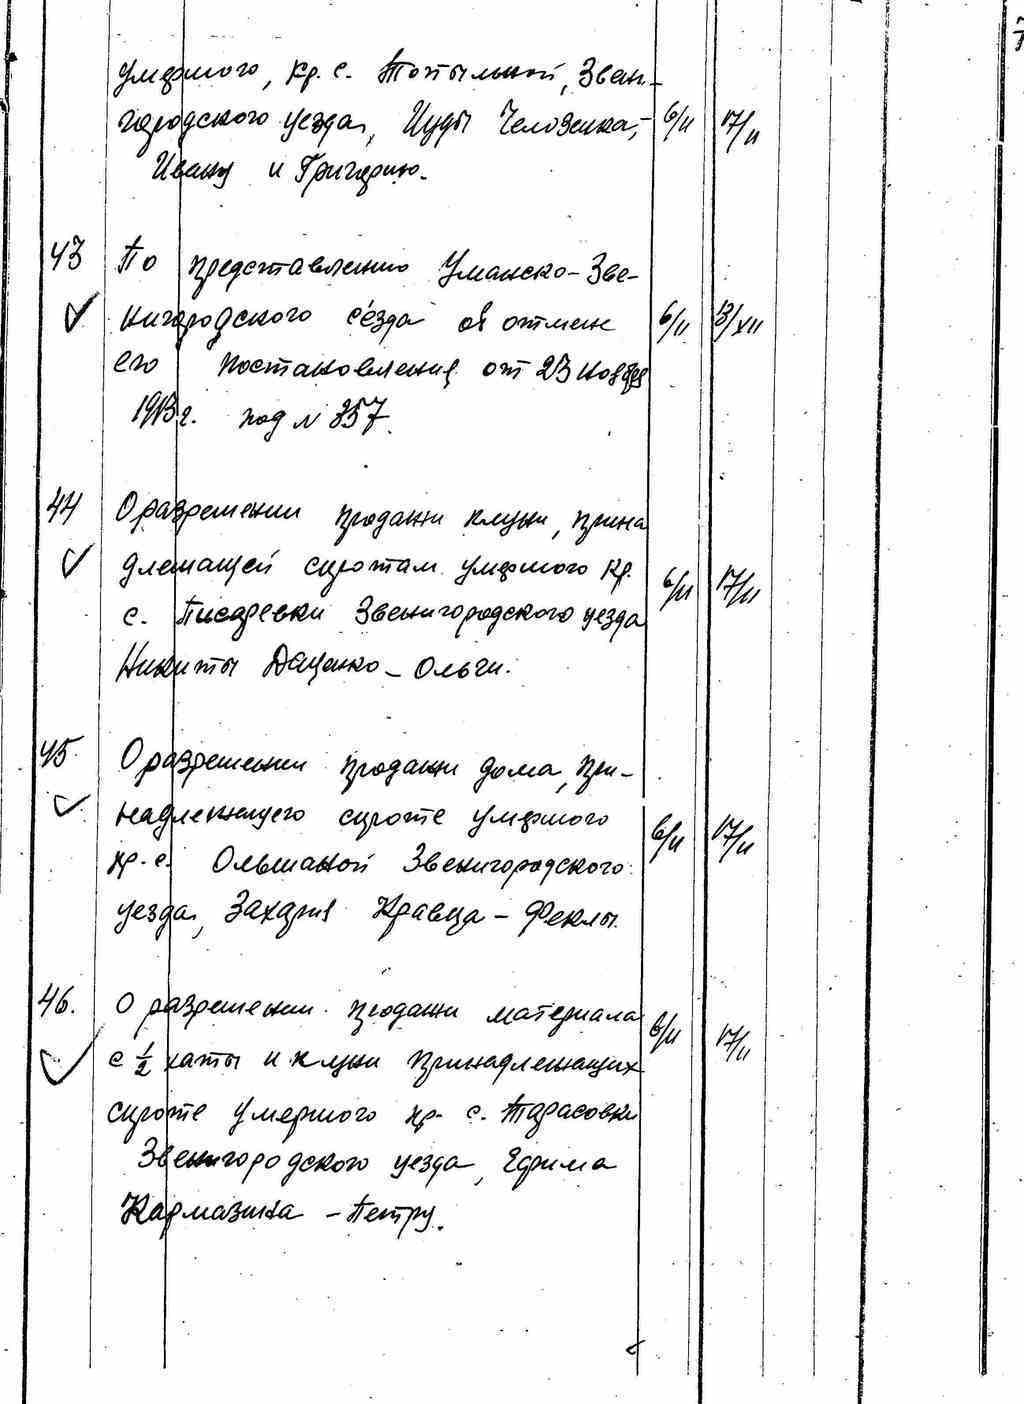 умершого, кр. с. Топыльной, Звен-
городского уезда, Иуды Человенка,-
6/II 17/II
Ивану и Григорию.
43 По представлению Уманско-Зве-
нигородского съезда об отмене
6/II 13/XII
его постановления от 23 ноября
1913 г. под N 357.
44 О разрешении продажи клуни, прина
длежащей сиротам умершого кр.
6/II 17/II
с. Писаревки Звенигородского уезда
Никиты Даценко - Ольги.
45. О разрешении продажи дома, при-
надлежащего сироте умершого
6/II 17/II
кр. с. Ольшаной Звенигородского
уезда, Захария Кравца - Феклы.
46. О разрешении продажи материала
6/II 17/II
с 1/2 хаты и клуни принадлежащих
сироте умершого кр. с. Тарасовки
Звенигородского уезда, Ефима
Кармазина - Петру.